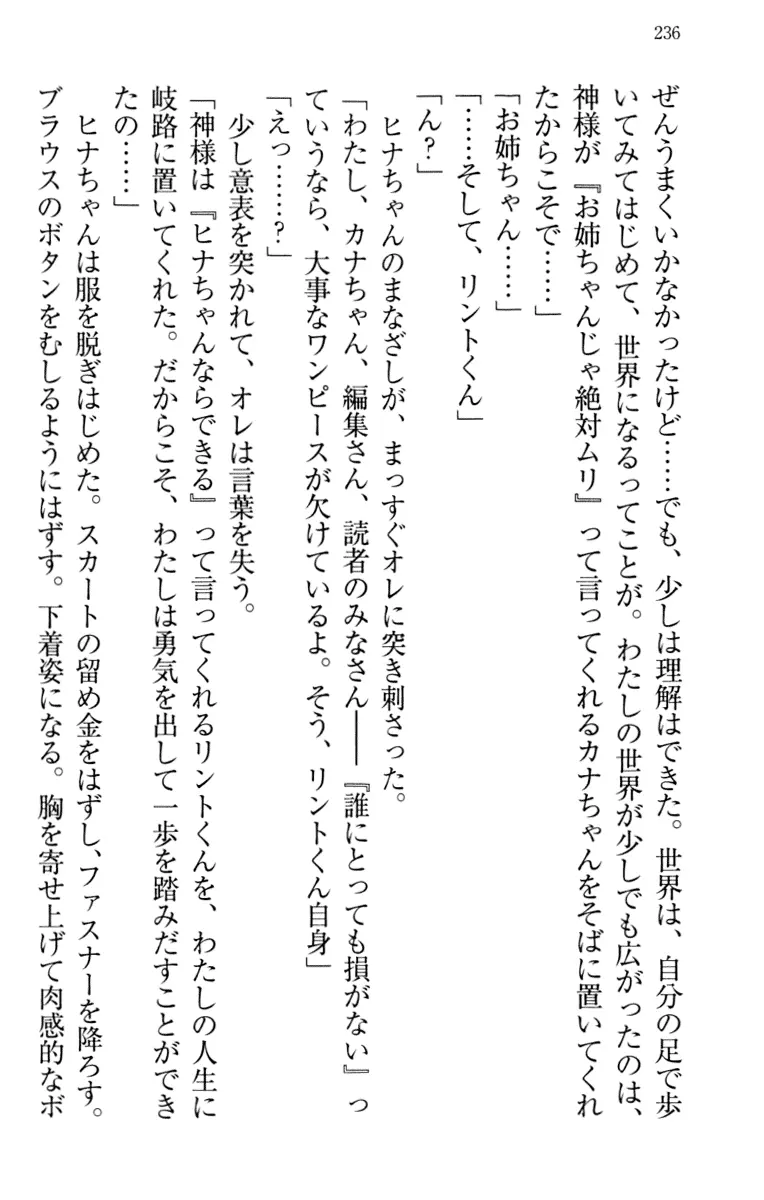 236
ぜんうまくいかなかったけど……でも、少しは理解はできた。世界は、自分の足で歩
いてみてはじめて、世界になるってことが。わたしの世界が少しでも広がったのは、
神様が『お姉ちゃんじゃ絶対ムリ』って言ってくれるカナちゃんをそばに置いてくれ
たからこそで……」
「お姉ちゃん……」
「……そして、リントくん」
「ん？」
　ヒナちゃんのまなざしが、まっすぐオレに突き刺さった。
「わたし、カナちゃん、編集さん、読者のみなさん――『誰にとっても損がない』っ
ていうなら、大事なワンピースが欠けているよ。そう、リントくん自身」
「えっ……？」
　少し意表を突かれて、オレは言葉を失う。
「神様は『ヒナちゃんならできる』って言ってくれるリントくんを、わたしの人生に
岐路に置いてくれた。だからこそ、わたしは勇気を出して一歩を踏みだすことができ
たの……」
　ヒナちゃんは服を脱ぎはじめた。スカートの留め金をはずし、ファスナーを降ろす。
ブラウスのボタンをむしるようにはずす。下着姿になる。胸を寄せ上げて肉感的なボ